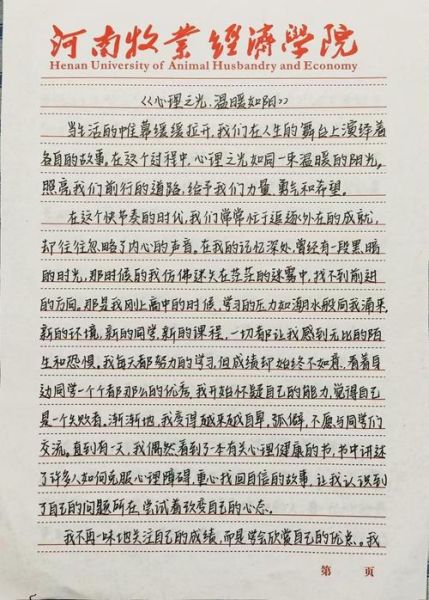 河南牧業經濟學院
Henan University of Animal Husbandry and Economy
《心理之光,温暖如阳》
当生活的帷幕缓缓拉开,我们在人生的舞台上演绎着
各自的故事。在这个过程中,心理之光如同一束温暖的阳光,
照亮我们前行的道路,给予我们力量、勇气和希望。
在这个快节奏的时代,我们常常忙于追逐外在的成就,
却往往忽略了内心的声音。在我的记忆深处,曾经有一段黑暗
的时光,那时候的我仿佛迷失在茫茫的迷雾中,找不到前进
的方向。那是我刚上高中的时候,学习的压力如潮水般向我涌来,
新的环境,新的同学,新的课程,一切都让我感到无比的陌
生和恐惧。我每天都努力的学习,但成绩却始终不如意,看着身
边同学一个个都那么的优秀,我开始怀疑自己的能力,觉得自己
是一个失败者,渐渐地,我变得越来越自卑,孤僻,不愿与同学们
交流。直到有一天,我偶然看到了一本有关心理健康的书,书中讲述
了许多人如何克服心理障碍,重心找回自信的故事,让我认识到
了自己的问题所在,尝试着改变自己的心态。
我不再一味地关注自己的成绩,而是学会欣赏自己的优点。我
第 页